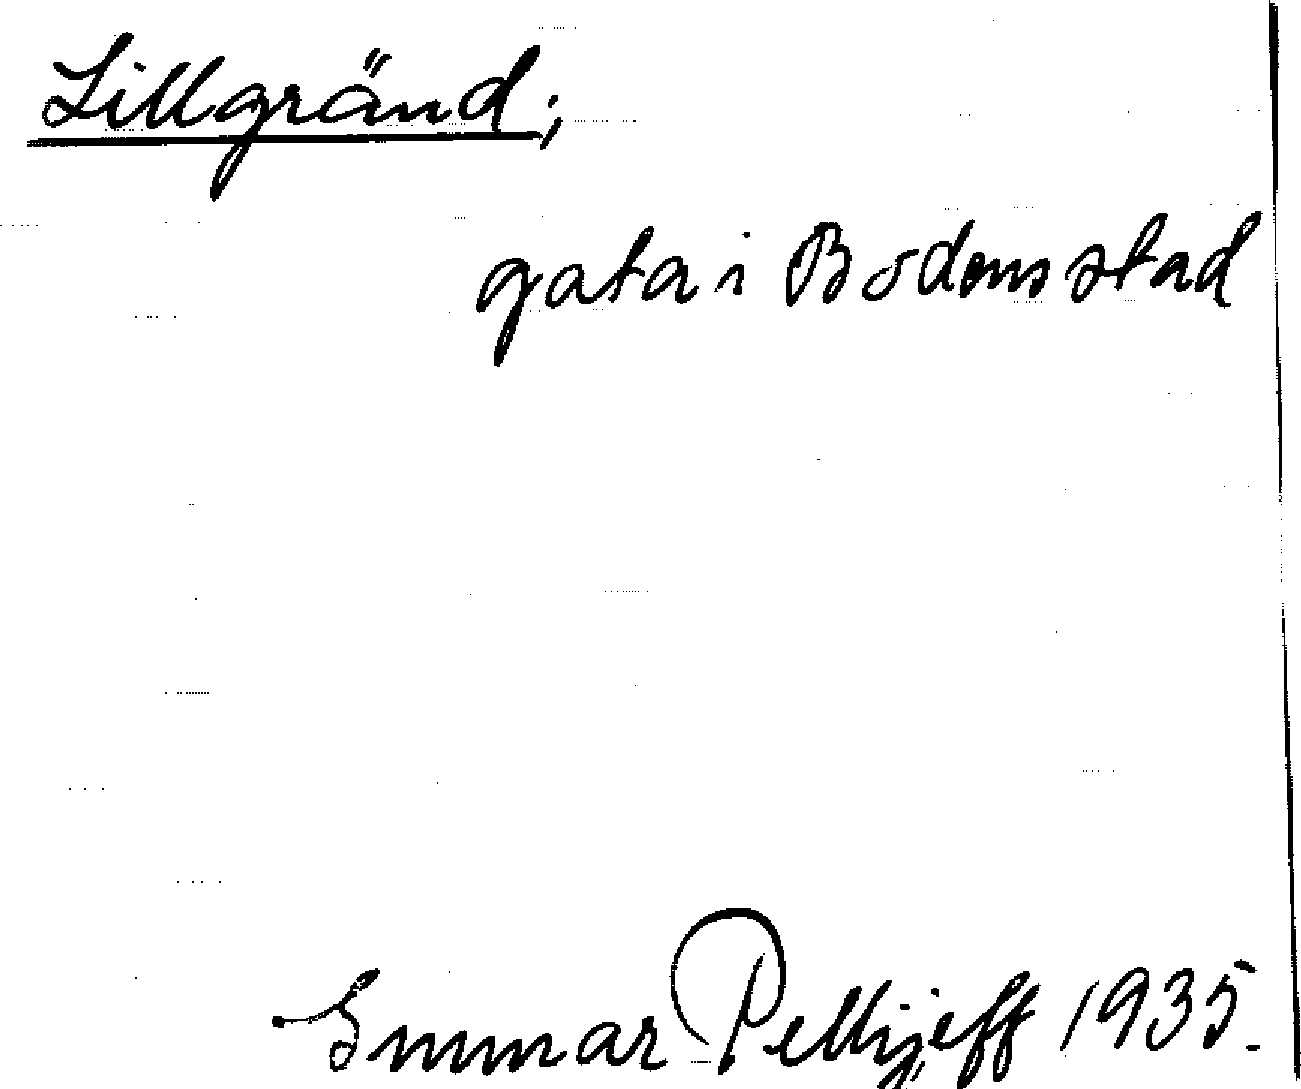 Lillgränd;
gata i Bodens stad
Gunnar Pellijeff 1935.